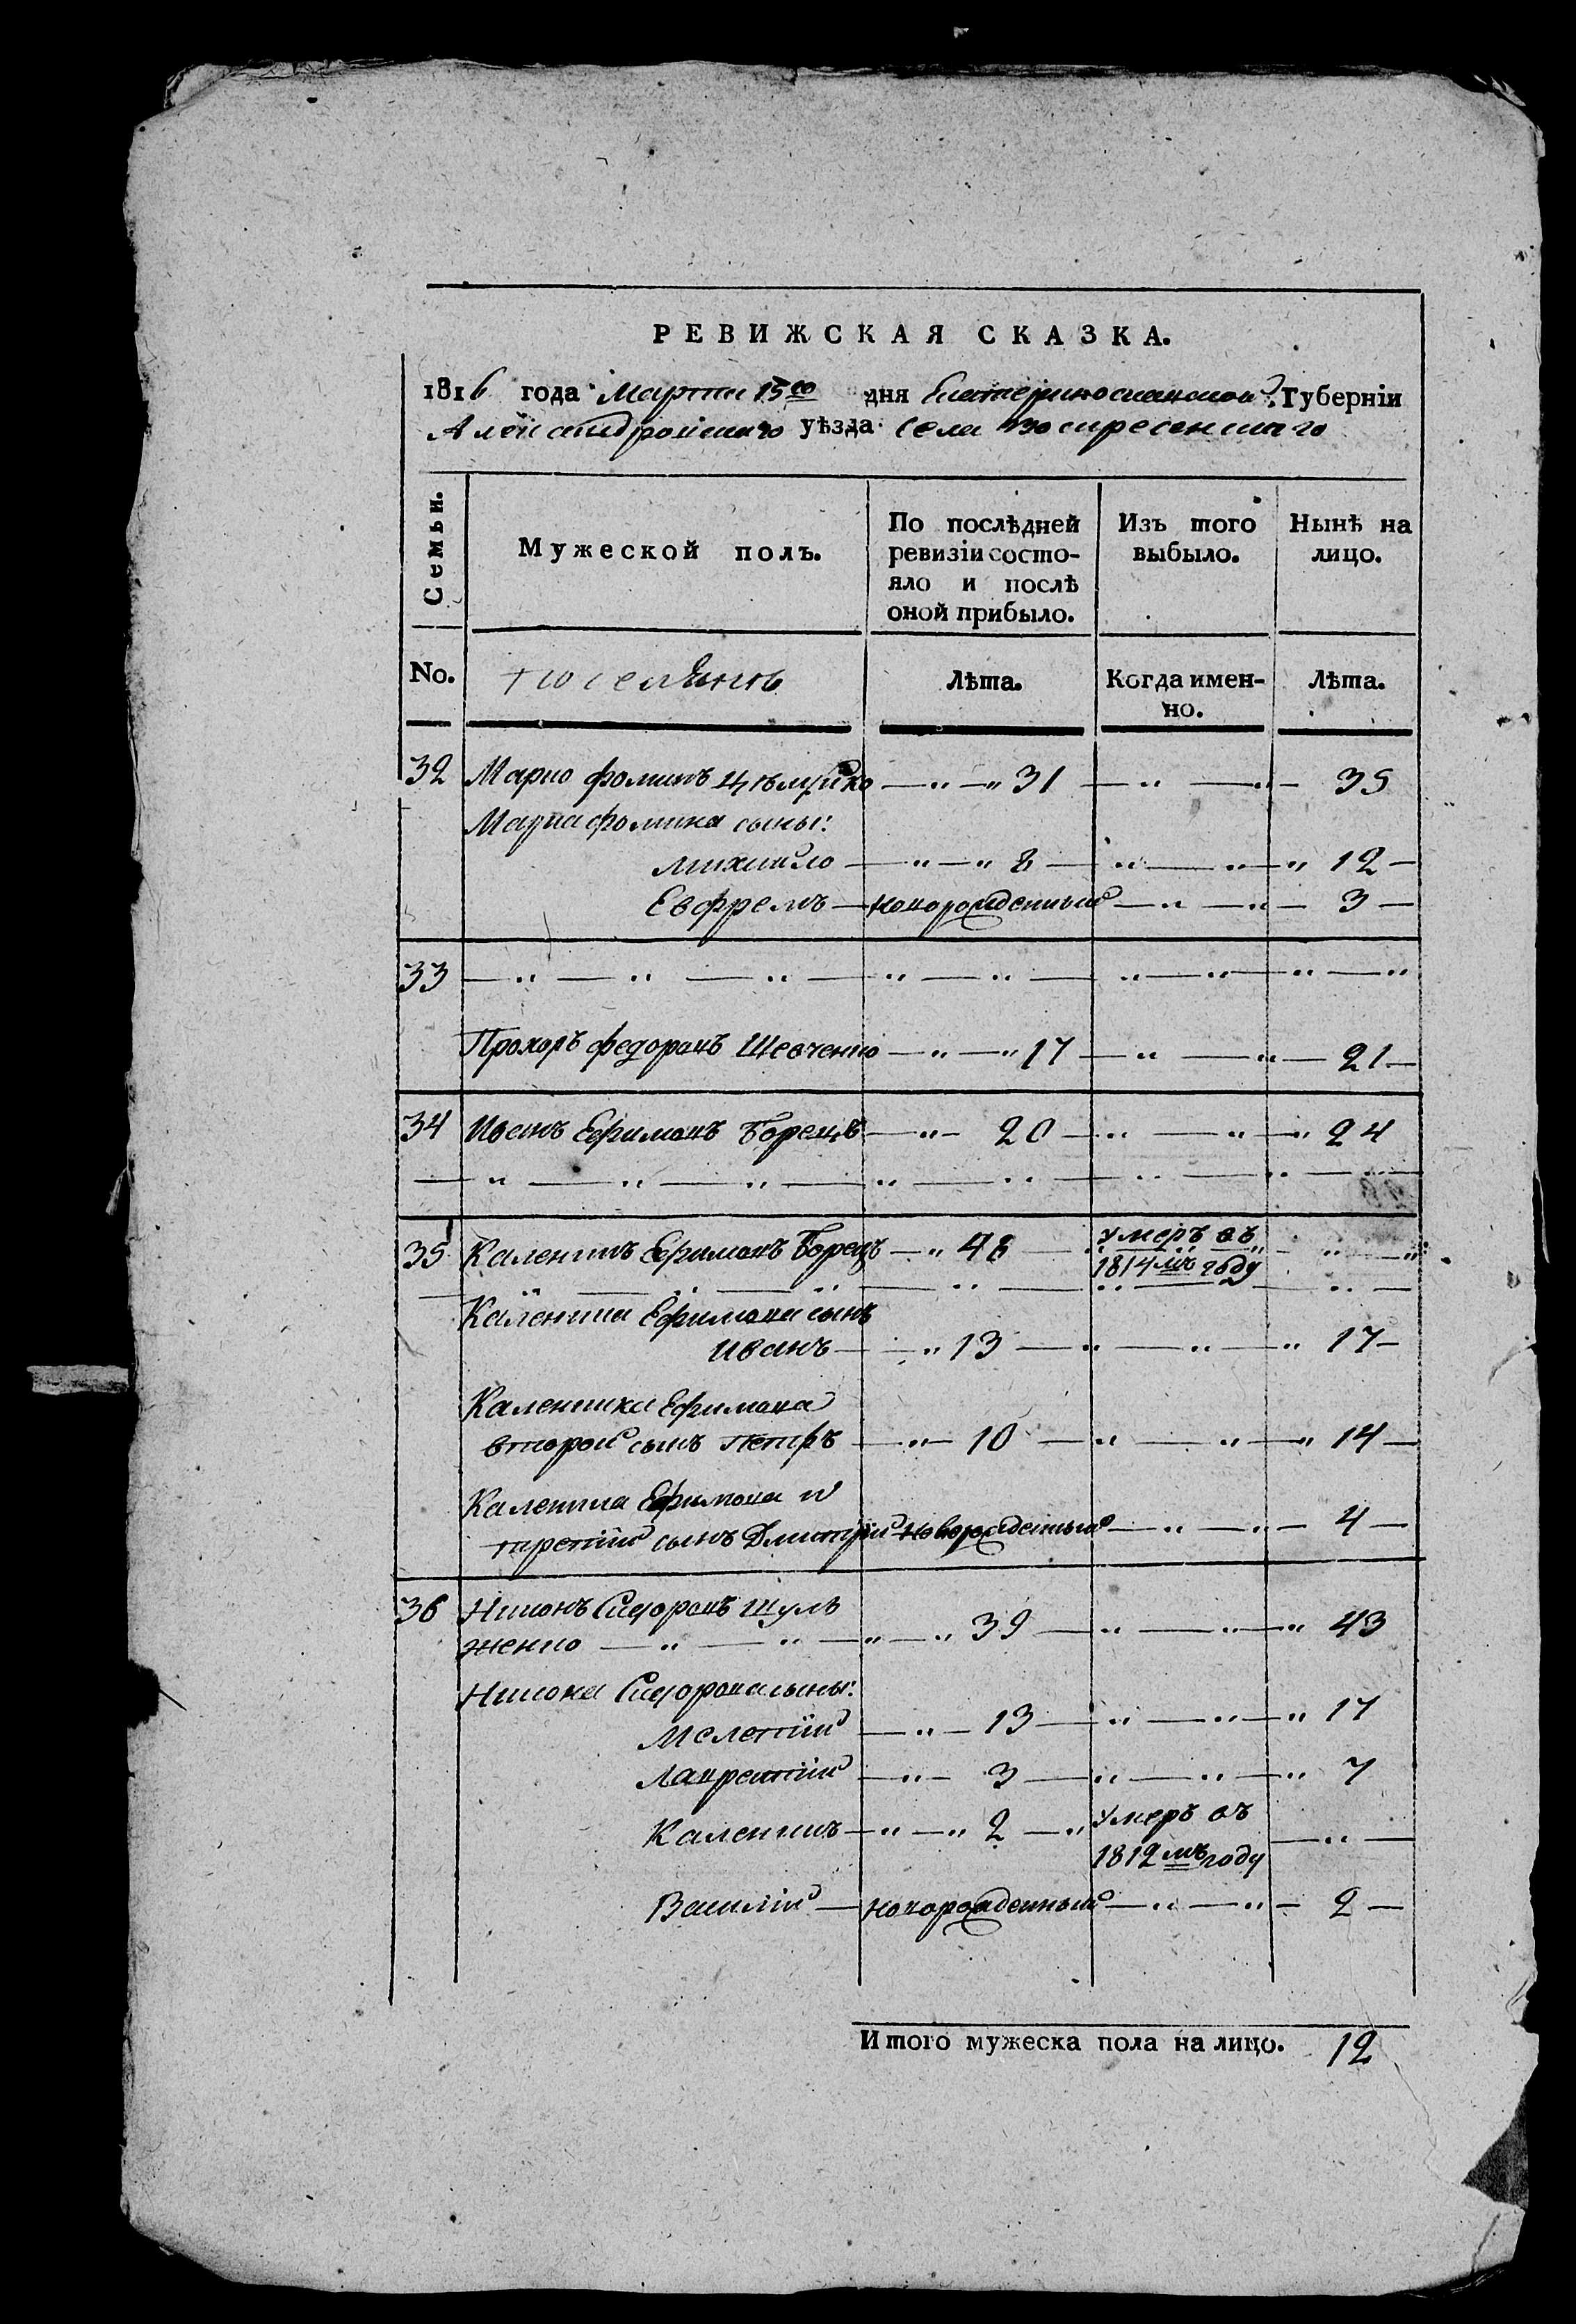 РЕВИЖСКАЯ СКАЗКА.
1816 года Марта 15го дня Екатеринославской Губерніи
Александровскаго уѣзда Села Воскресенскаго
Семьи. Мужеской полъ. По послѣдней ревизіи состояло и послѣ оной прибыло. Изъ того выбыло. Нынѣ на лицо.
No. поселянъ Лѣта. Когда именно. Лѣта.
32 Марко Фоминъ Цѣлуйко — " — " 31 — " — " — 35
Марка Фомина сыны:
Михайло — " — " 8 — " — " — " 12 —
Евфремъ — новорожденный — " — " — 3 —
33 — " — " — " — " — " — " — " — " — "
Прохоръ Федоровъ Шевченко — " — " 17 — " — " — 21 —
34 Иванъ Ефимовъ Борецъ — " — 20 — " — " — " 24
— " — " — " — " — " — " — " —
35 Каленикъ Ефимовъ Борецъ — " 48 умеръ въ 1814мъ году " — "
Каленика Ефимова сынъ
Иванъ — " 13 — " — " — " 17 —
Каленика Ефимова
второй сынъ Петръ — " — 10 — " — " — " 14 —
Каленика Ефимова
третій сынъ Дмитрій новорожденный — " — " — 4 —
36 Никонъ Сидоровъ Шуль
женко — " — " — " — " 39 — " — " — " 43
Никона Сидорова сыны:
Мелетій — " — 13 — " — " — " 17
Лаврентій — " — 3 — " — " — " 7
Каленикъ — " — " 2 — " умеръ въ — " —
1812мъ году
Василій — новорожденный — " — " — 2 —
Итого мужеска пола на лицо. 12